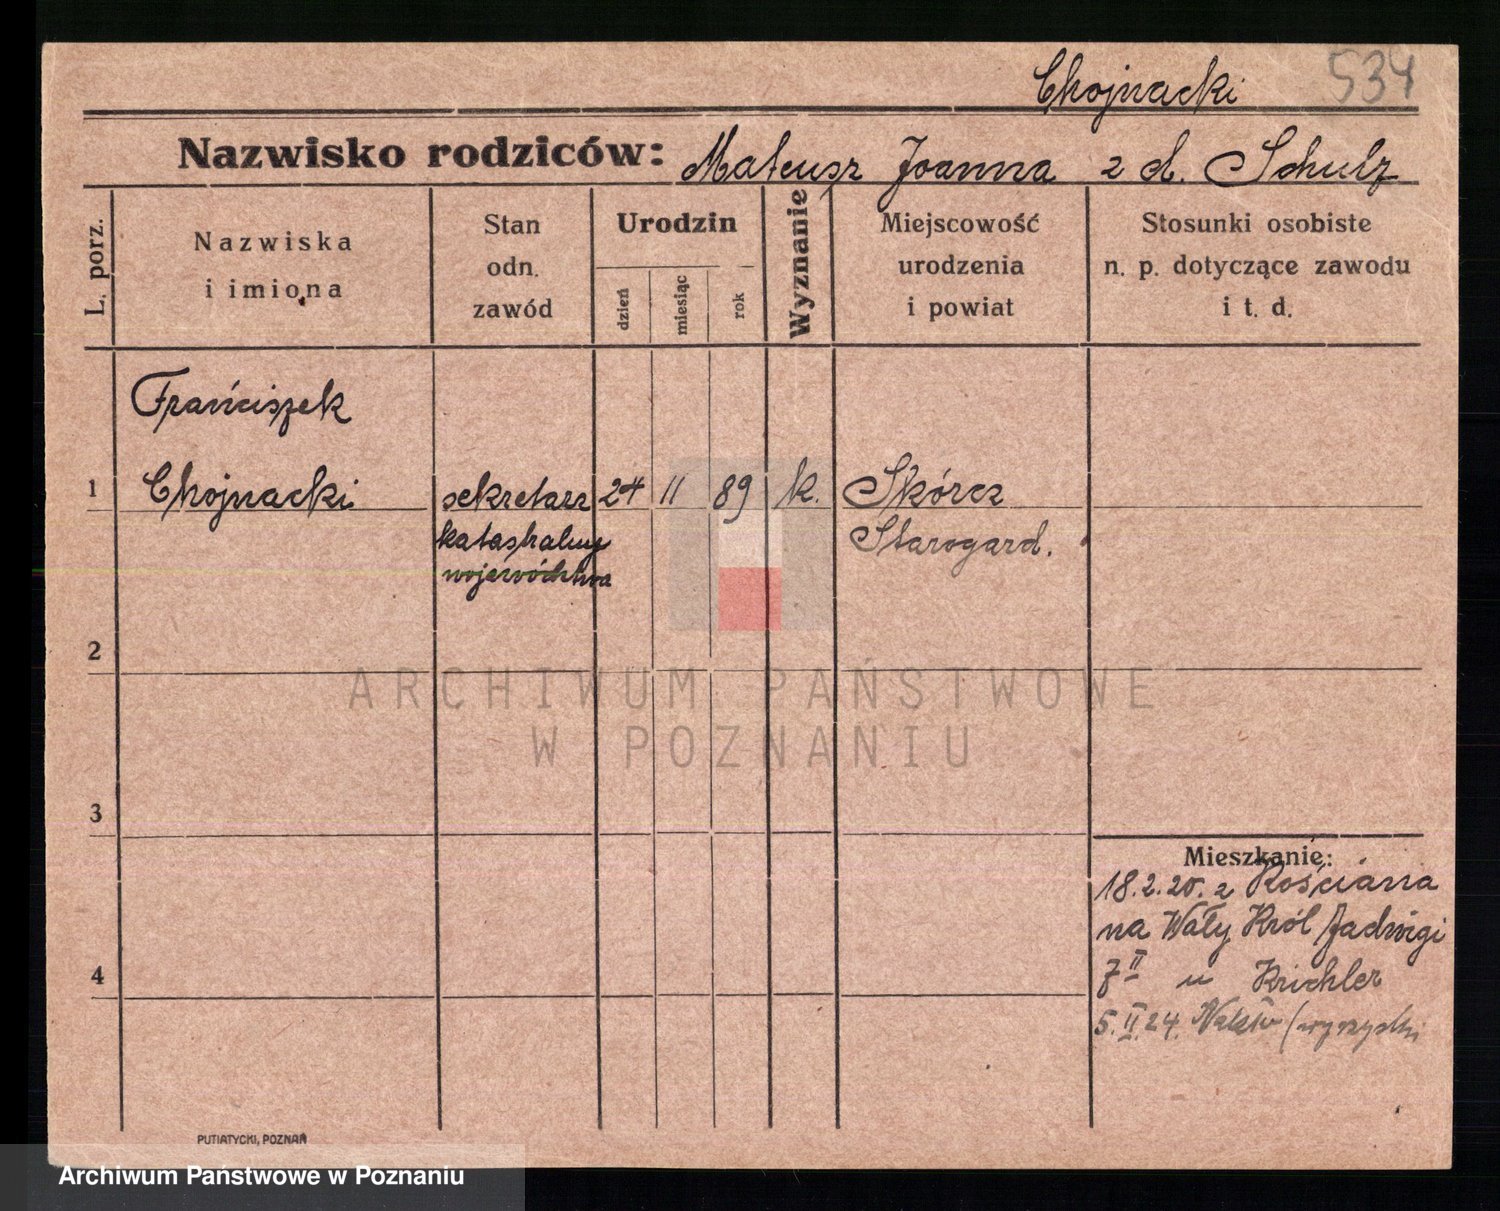 Chojnacki 534
Nazwisko rodziców: Mateusz Joanna z d. Schulz
L. porz.
Nazwiska
i imiona
Stan
odn.
zawód
Urodzin
dzień
miesiąc
rok
Wyznanie
Miejscowość
urodzenia
i powiat
Stosunki osobiste
n. p. dotyczące zawodu
i t. d.
Franciszek
1 Chojnacki sekretarz 24 11 89 k. Skórcz
katastralny Starogard.
województwa
2
ARCHIWUM PAŃSTWOWE
W POZNANIU
3
Mieszkanie:
18.2.20. z Kościana
na Wały Król Jadwigi
4
7 II u Krichler
5.II.24. (wyrzyski
PUTIATYCKI, POZNAŃ
Archiwum Państwowe w Poznaniu